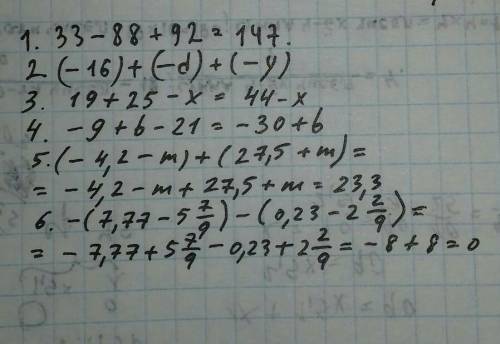 1. 33 - 88 + 92 = 147.
2 (-16) + (-d) + (-y)
3. 19 + 25 - x = 44 - x
4. -9 + b - 21 = -30 + b
5. (-4,2 - m) + (27,5 + m) =
= -4,2 - m + 27,5 + m = 23,3
6. -(7,77 - 5 7/9) - (0,23 - 2 2/9) =
= -7,77 + 5 7/9 - 0,23 + 2 2/9 = -8 + 8 = 0